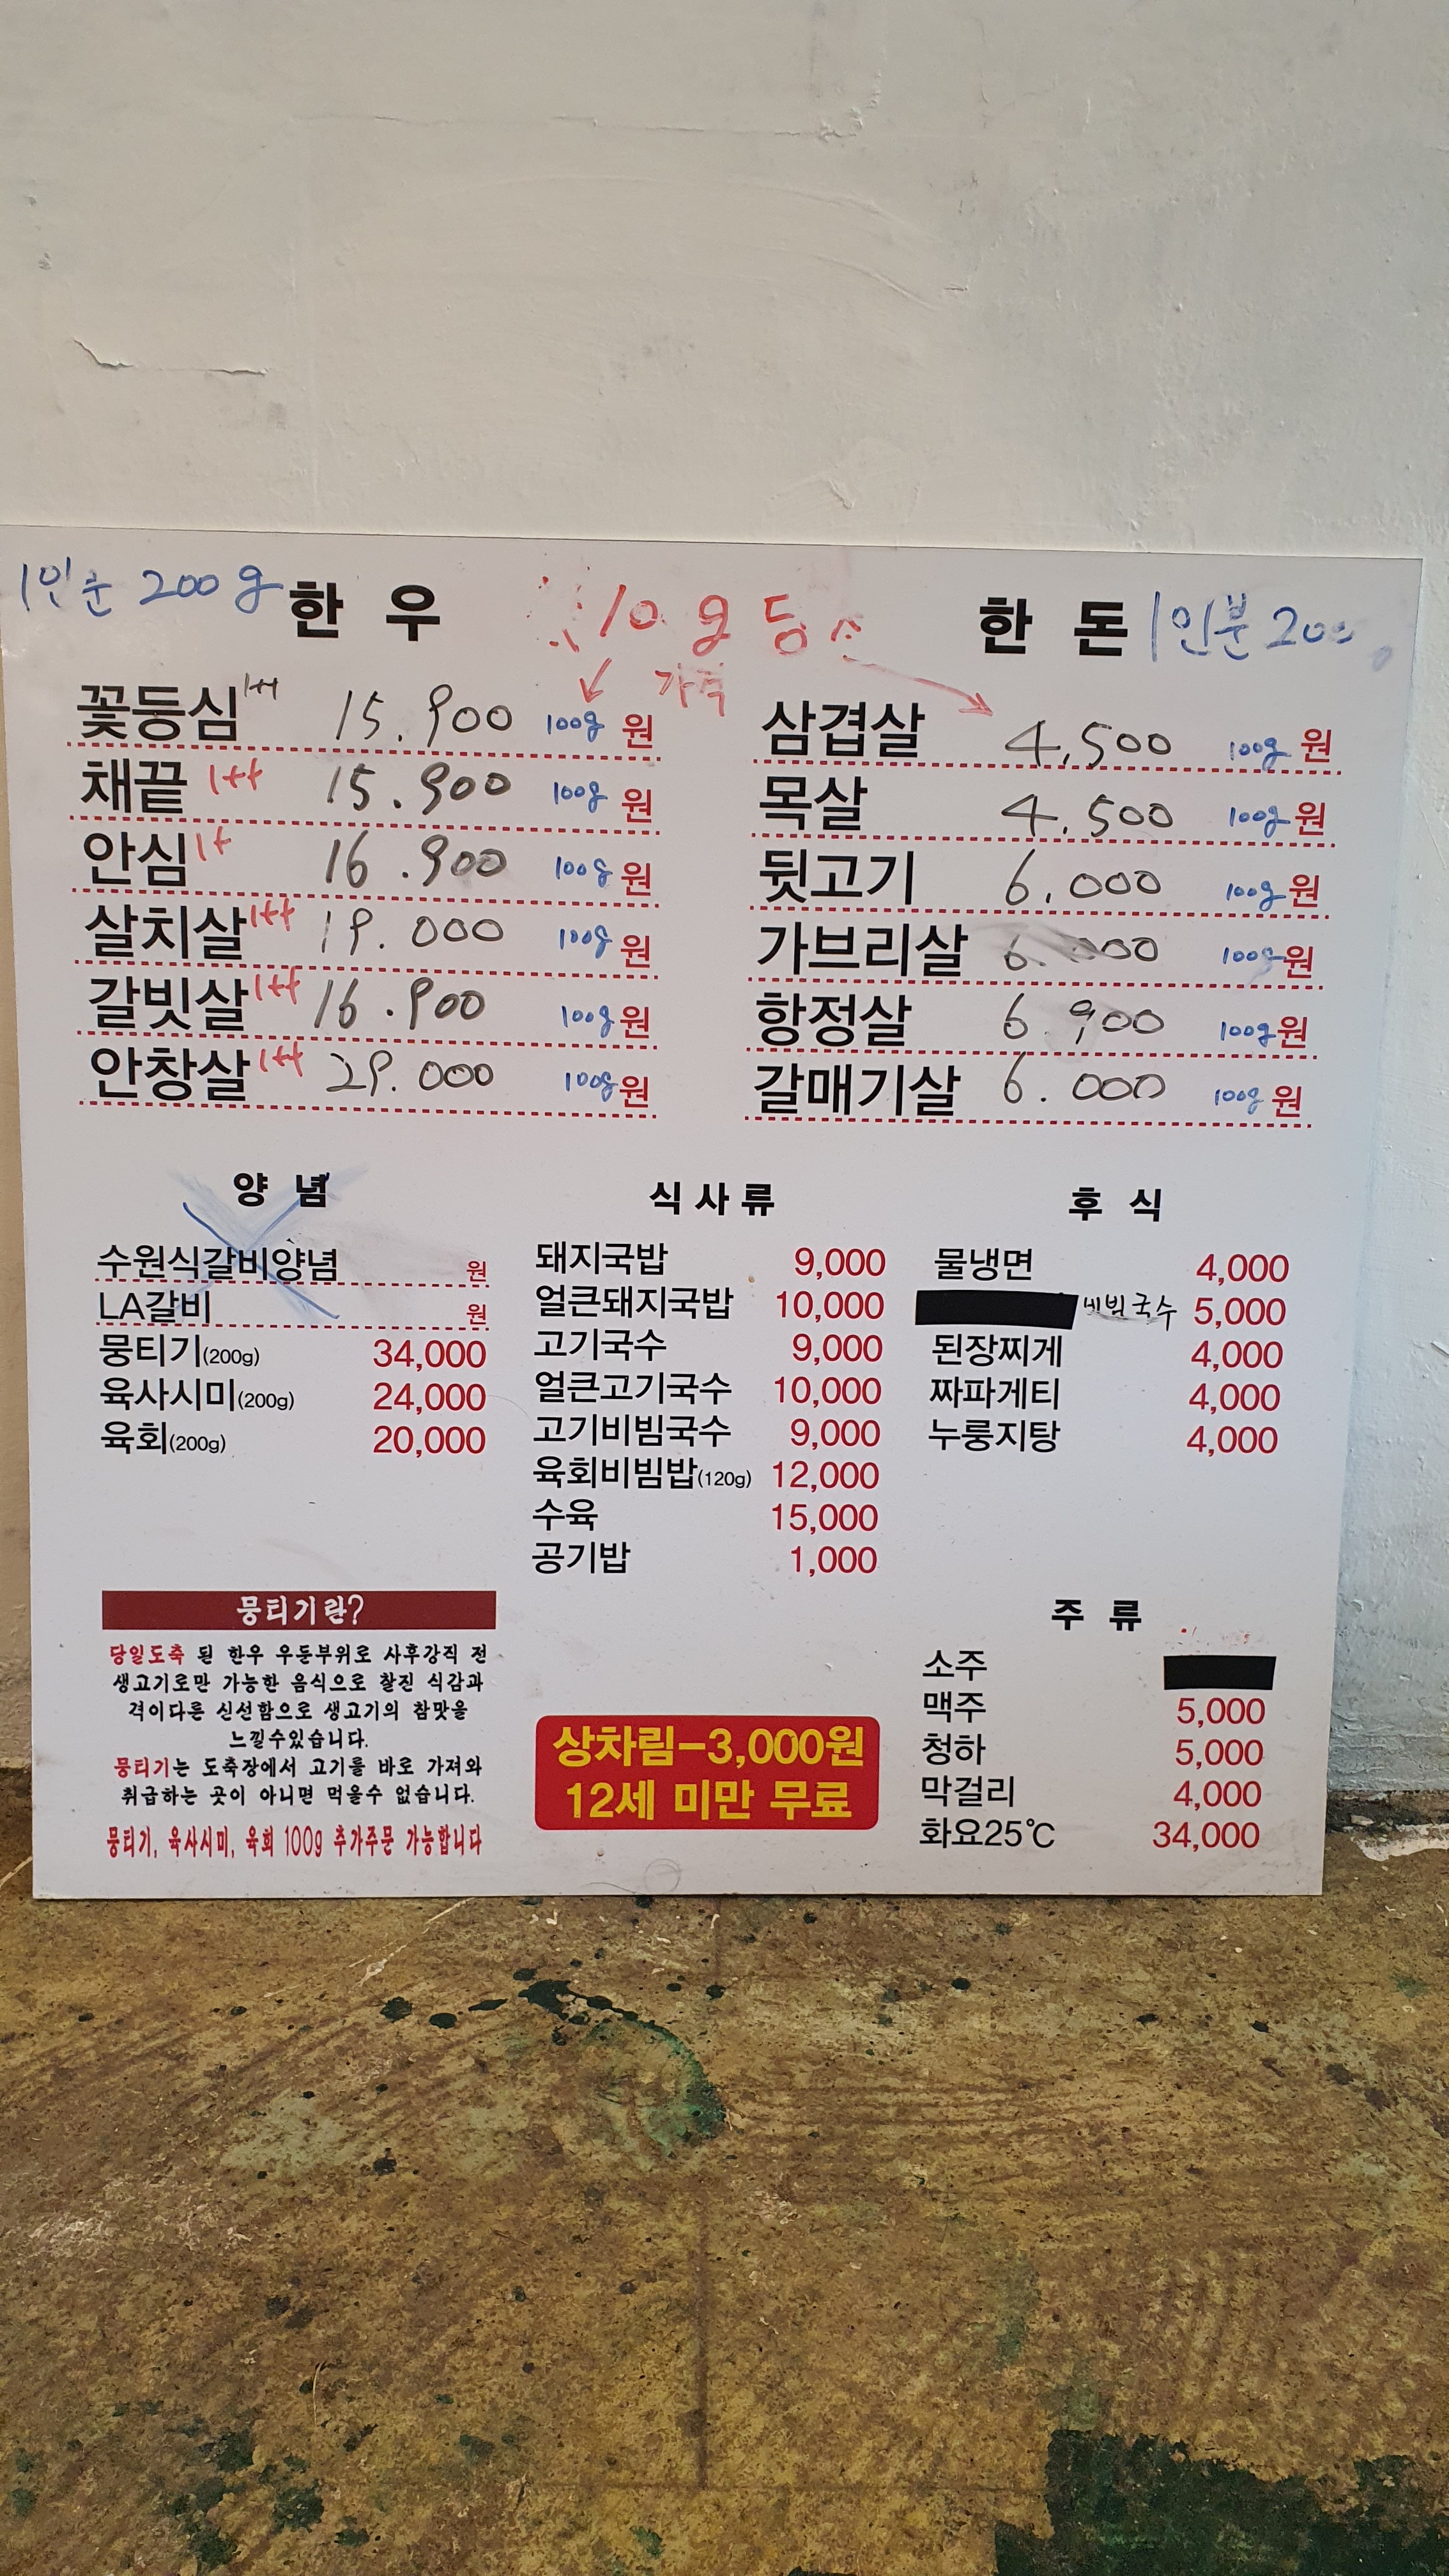 1인분 200g 한 우
10g당
가격
꽃등심 1++ 15.900 100g 원
채끝 1++ 15.900 100g 원
안심 1+ 16.900 100g 원
살치살 1++ 19.000 100g 원
갈빗살 1++ 16.900 100g 원
안창살 1++ 29.000 100g 원
한 돈 1인분
삼겹살 4,500 100g 원
목살 4.500 100g 원
뒷고기 6.000 100g 원
가브리살 6.000 100g 원
항정살 6.900 100g 원
갈매기살 6.000 100g 원
양 념
수원식갈비양념 원
LA갈비 원
뭉티기(200g) 34,000
육사시미(200g) 24,000
육회(200g) 20,000
식사류
돼지국밥 9,000
얼큰돼지국밥 10,000
고기국수 9,000
얼큰고기국수 10,000
고기비빔국수 9,000
육회비빔밥(120g) 12,000
수육 15,000
공기밥 1,000
후 식
물냉면 4,000
비빔국수 5,000
된장찌게 4,000
짜파게티 4,000
누룽지탕 4,000
뭉티기란?
당일도축 된 한우 우둔부위로 사후강직 전
생고기로만 가능한 음식으로 찰진 식감과
격이다른 신선함으로 생고기의 참맛을
느낄수있습니다.
뭉티기는 도축장에서 고기를 바로 가져와
취급하는 곳이 아니면 먹을수 없습니다.
뭉티기, 육사시미, 육회 100g 추가주문 가능합니다
상차림-3,000원
12세 미만 무료
주 류
소주
맥주 5,000
청하 5,000
막걸리 4,000
화요25℃ 34,000